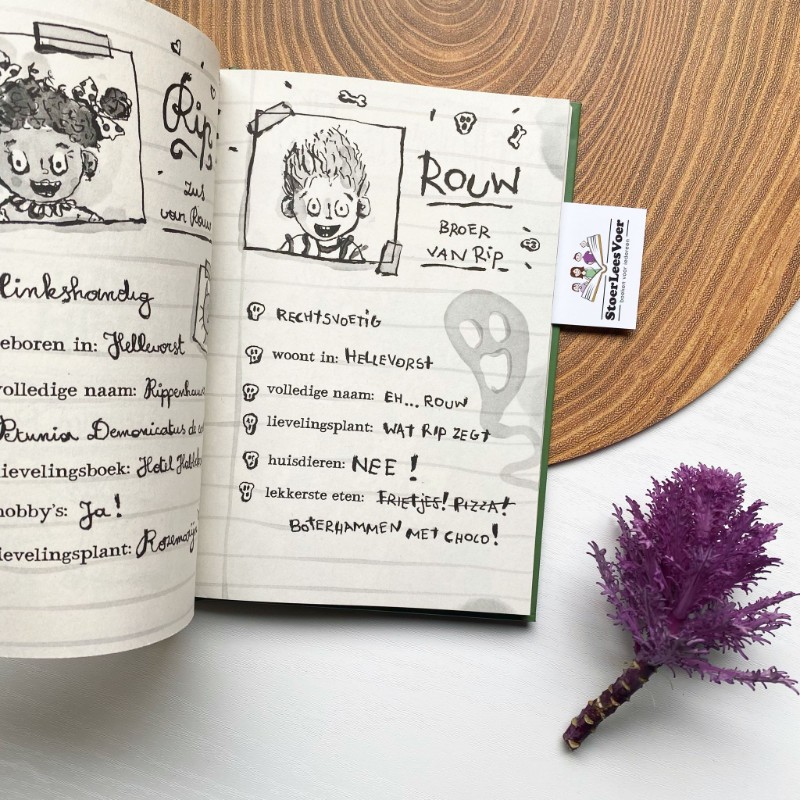 Rip
zus
van Rouw
linkshandig
eboren in: Hellevorst
volledige naam:
Petunia Demonicatus de
ievelingsboek: Hotel
hobby's: Ja!
ievelingsplant:
ROUW
BROER
VAN RIP
RECHTSVOETIG
woont in: HELLEVORST
volledige naam: EH... ROUW
lievelingsplant: WAT RIP ZEGT
huisdieren: NEE!
lekkerste eten: FRIETJES! PIZZA!
BOTERHAMMEN MET CHOCO!
StoerLeesVoer
boeken voor iedereen